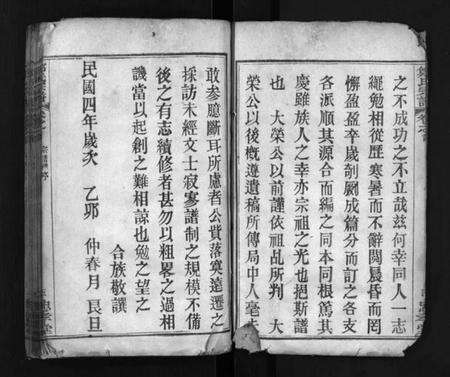 之不成功之不立哉茲何幸同人一志
繩勉相從歷寒暑而不辭閱晨昏而罔
懈盈盈卒歲剞劂成篇分而訂之各支
各派順其源合而編之同本同根篤其
慶雖族人之幸亦宗祖之光也抑斯譜
也　大榮公以前謹依祖乩所判　大
榮公以後概遵遺稿所傳局中人毫未
敢參臆斷耳所慮者公貲落寞遠遷之
採訪未經文士寂寥譜制之規模不備
後之有志續修者甚勿以粗畧之過相
譏當以起創之難相諒也勉之望之
合族敬譔
民國四年歲次　乙夘　仲春月　良旦